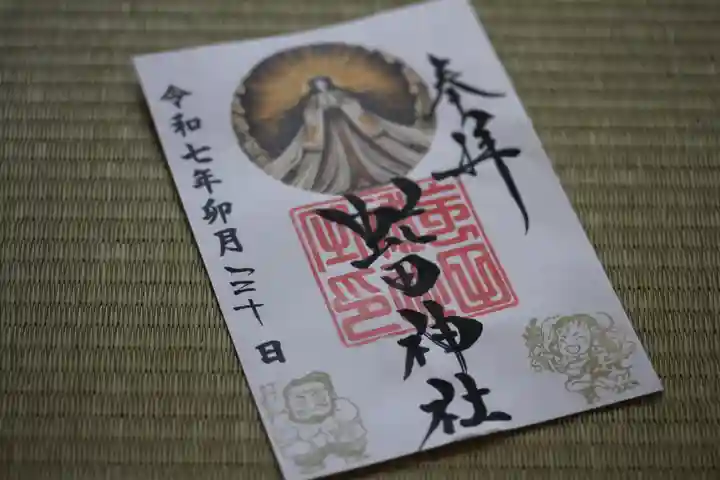 奉拝
虻田神社
令和七年卯月三十日